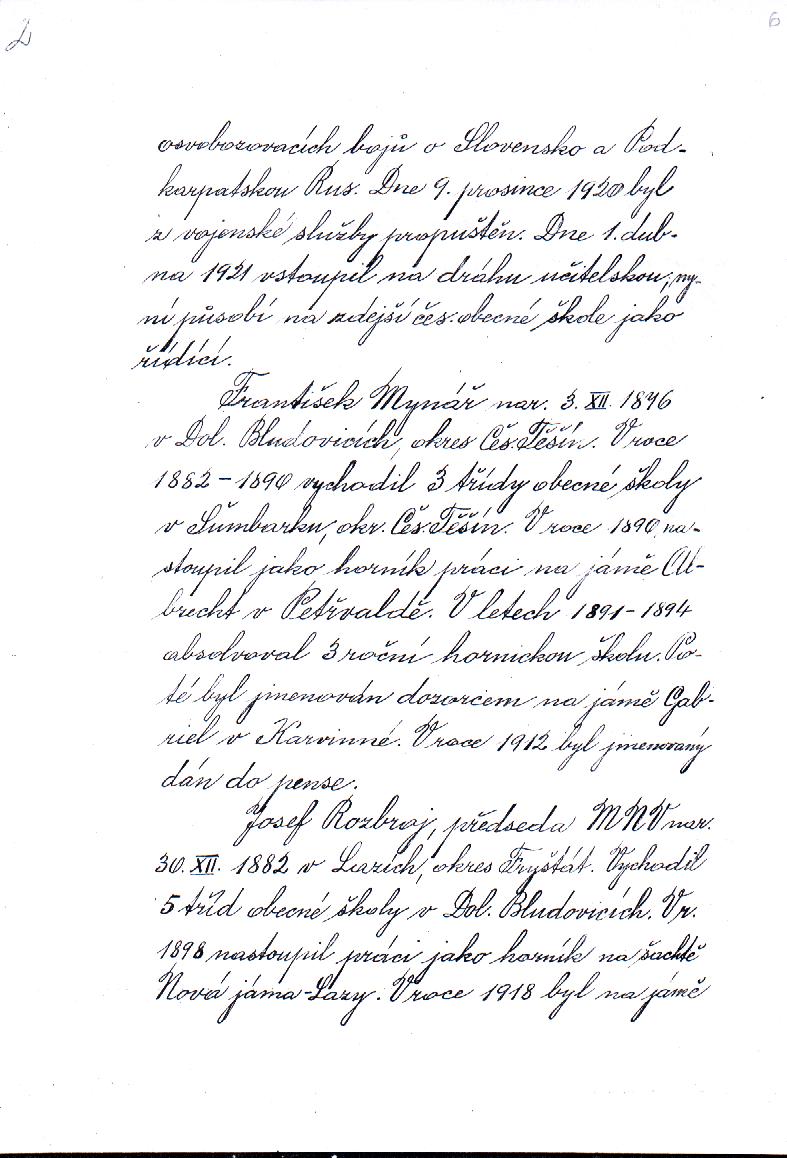 2
6
osvobozovacích bojů o Slovensko a Pod-
karpatskou Rus. Dne 9. prosince 1920 byl
z vojenské služby propuštěn. Dne 1. dub-
na 1921 vstoupil na dráhu učitelskou, ny-
ní působí na zdejší čes. obecné škole jako
řídící.
František Mynář nar. 3. XII. 1876
v Dol. Bludovicích, okres Čes. Těšín. V roce
1882-1890 vychodil 3 třídy obecné školy
v Šumbarku, okr. Čes. Těšín. V roce 1890 na-
stoupil jako horník práci na jámě Al-
brecht v Petřvaldě. V letech 1891-1894
absolvoval 3 roční hornickou školu. Po-
té byl jmenován dozorcem na jámě Gab-
riel v Karvinné. V roce 1912 byl jmenovaný
dán do pense.
Josef Rozbroj, předseda MNV nar.
30. XII. 1882 v Lazích, okres Fryštát. Vychodil
5 tříd obecné školy v Dol. Bludovicích. V r.
1898 nastoupil práci jako horník na šachtě
Nová jáma-Lazy. V roce 1918 byl na jámě